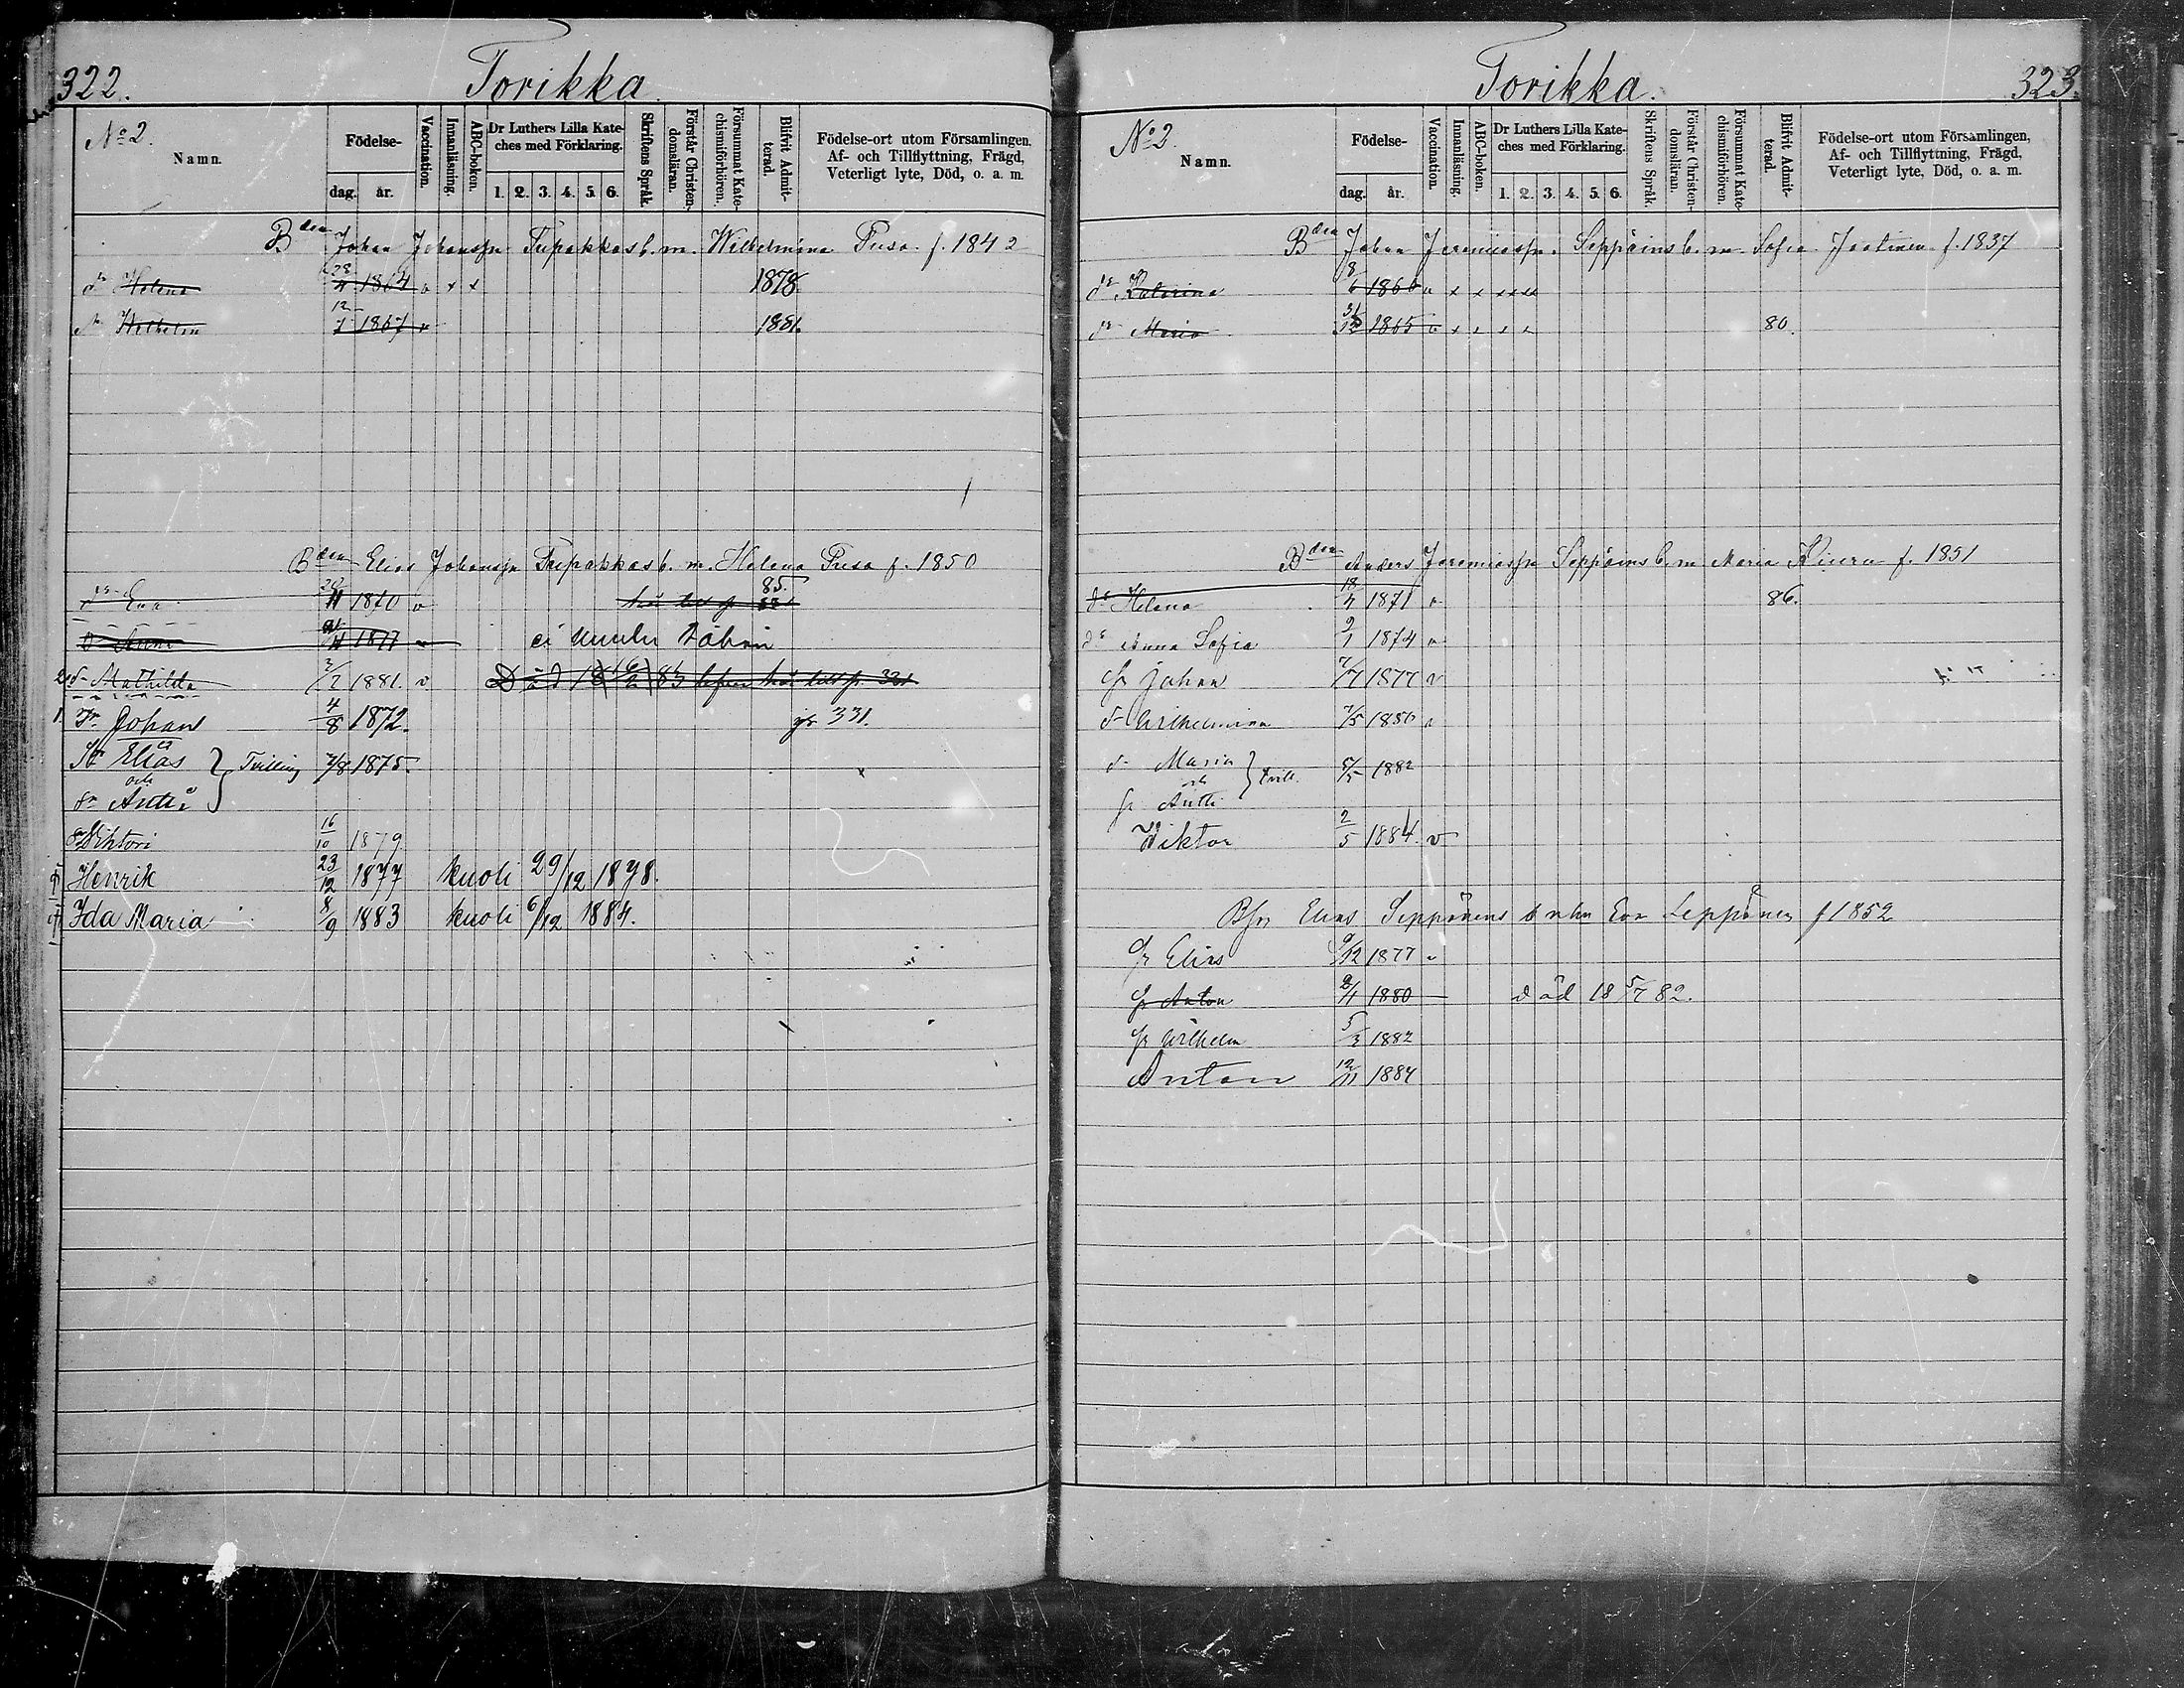 322.
Torikka
No 2.
Namn.
Födelse-
dag.
år.
Vaccination.
Innanläsning.
ABC-boken.
Dr Luthers Lilla Kate-
ches med Förklaring.
1. 2. 3. 4. 5. 6.
Skriftens Språk.
Förstår Christen-
domsläran.
Försummat Kate-
chismiförhören.
Blifvit Admit-
terad.
Födelse-ort utom Församlingen,
Af- och Tillflyttning, Frägd,
Veterligt lyte, Död, o. a. m.
Bden Johan Johanssn Tupakkas b. m. Wilhelmina Pusa f. 1842
dr Helena 1864 v x x 1878
Wilhelm 12/7 1867 v 1881.
Bden Elias Johanssn Tupakkas b. m. Helena Pusa f. 1850
dr Eva 1870 v 85.
1877 ei
2 dr Mathilda 3/2 1881. v Död 83 321
1. Sr Johan 4/8 1872. 331.
Sr Elias } Tvilling 7/8 1875.
och
Sr Antti
Viktori 16/10 1879
Henrik 23/12 1877 kuoli 29/12 1878.
Ida Maria 8/9 1883 kuoli 6/12 1884.
Torikka.
323.
No 2.
Namn.
Födelse-
dag.
år.
Vaccination.
Innanläsning.
ABC-boken.
Dr Luthers Lilla Kate-
ches med Förklaring.
1. 2. 3. 4. 5. 6.
Skriftens Språk.
Förstår Christen-
domsläran.
Försummat Kate-
chismiförhören.
Blifvit Admit-
terad.
Födelse-ort utom Församlingen,
Af- och Tillflyttning, Frägd,
Veterligt lyte, Död, o. a. m.
Bden Johan Jeremiassn. Seppäins b. m. Sofia f. 1837
dr Katarina 8/6 1860 v x x x x x
dr Maria 31/12 1865 v x x x x 80.
Bden Anders Jeremiassn Seppäins b. m Maria Kiuru f. 1851
dr Helena 18/4 1871 v 86.
dr Anna Sofia 9/1 1874 v
Sr Johan 7/7 1877 v
dr Wilhelmina 7/5 1880 v
dr Maria } tvill. 5/5 1882
och
Sr Antti
Viktor 2/5 1884. v
Elias Seppänens Eva Leppänen f 1852
Sr Elias 9/12 1877 v
Sr Anton 2/1 1880 död 18 5/7 82.
Sr Wilhelm 5/3 1882
Anton 12/11 1884